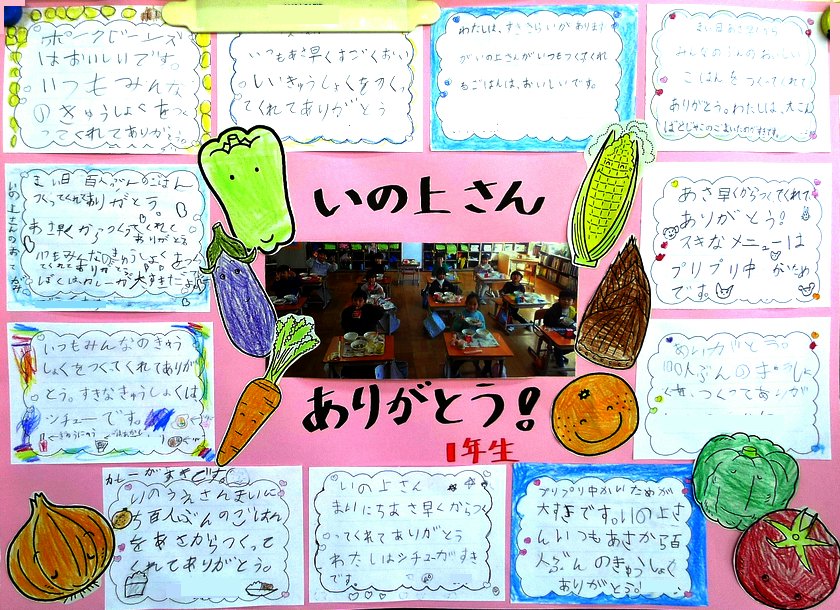 ポークビーンズ
はおいしいです。
いつもみんな
のきゅうしょくをつく
ってくれてありがとう。
いつもあさ早くすごくおい
しいきゅうしょくをつくっ
てくれてありがとう
わたしは、すききらいがあります
がいの上さんがいつもつくってくれ
るごはんは、おいしいです。
まい日あさ早くから
みんなのぶんのおいしい
ごはんをつくってくれて
ありがとう。わたしは、大こん
まい日百人ぶんのごはん
つくってくれてありがとう
あさ早くからつくってくれて
ありがとう
いつもみんなのきゅうしょくをつ
いの上さん
あさ早くからつくってくれて
ありがとう!
スキなメニューは
プリプリ中かいため
です。
いつもみんなのきゅう
しょくをつくってくれてありが
とう。すきなきゅうしょくは
シチューです。
ありがとう!
1年生
ありがとう。
100人ぶんのきゅうしょ
くを、つくってありが
カレーがすきです。
いのうえさんまいに
ち百人ぶんのごはん
をあさからつくって
くれてありがとう。
いの上さん
まいにちあさ早くからつく
ってくれてありがとう
わたしはシチューがすき
です。
プリプリ中かいためが
大すきです。いの上さ
んいつもあさから百
人ぶんのきゅうしょく
ありがとう。